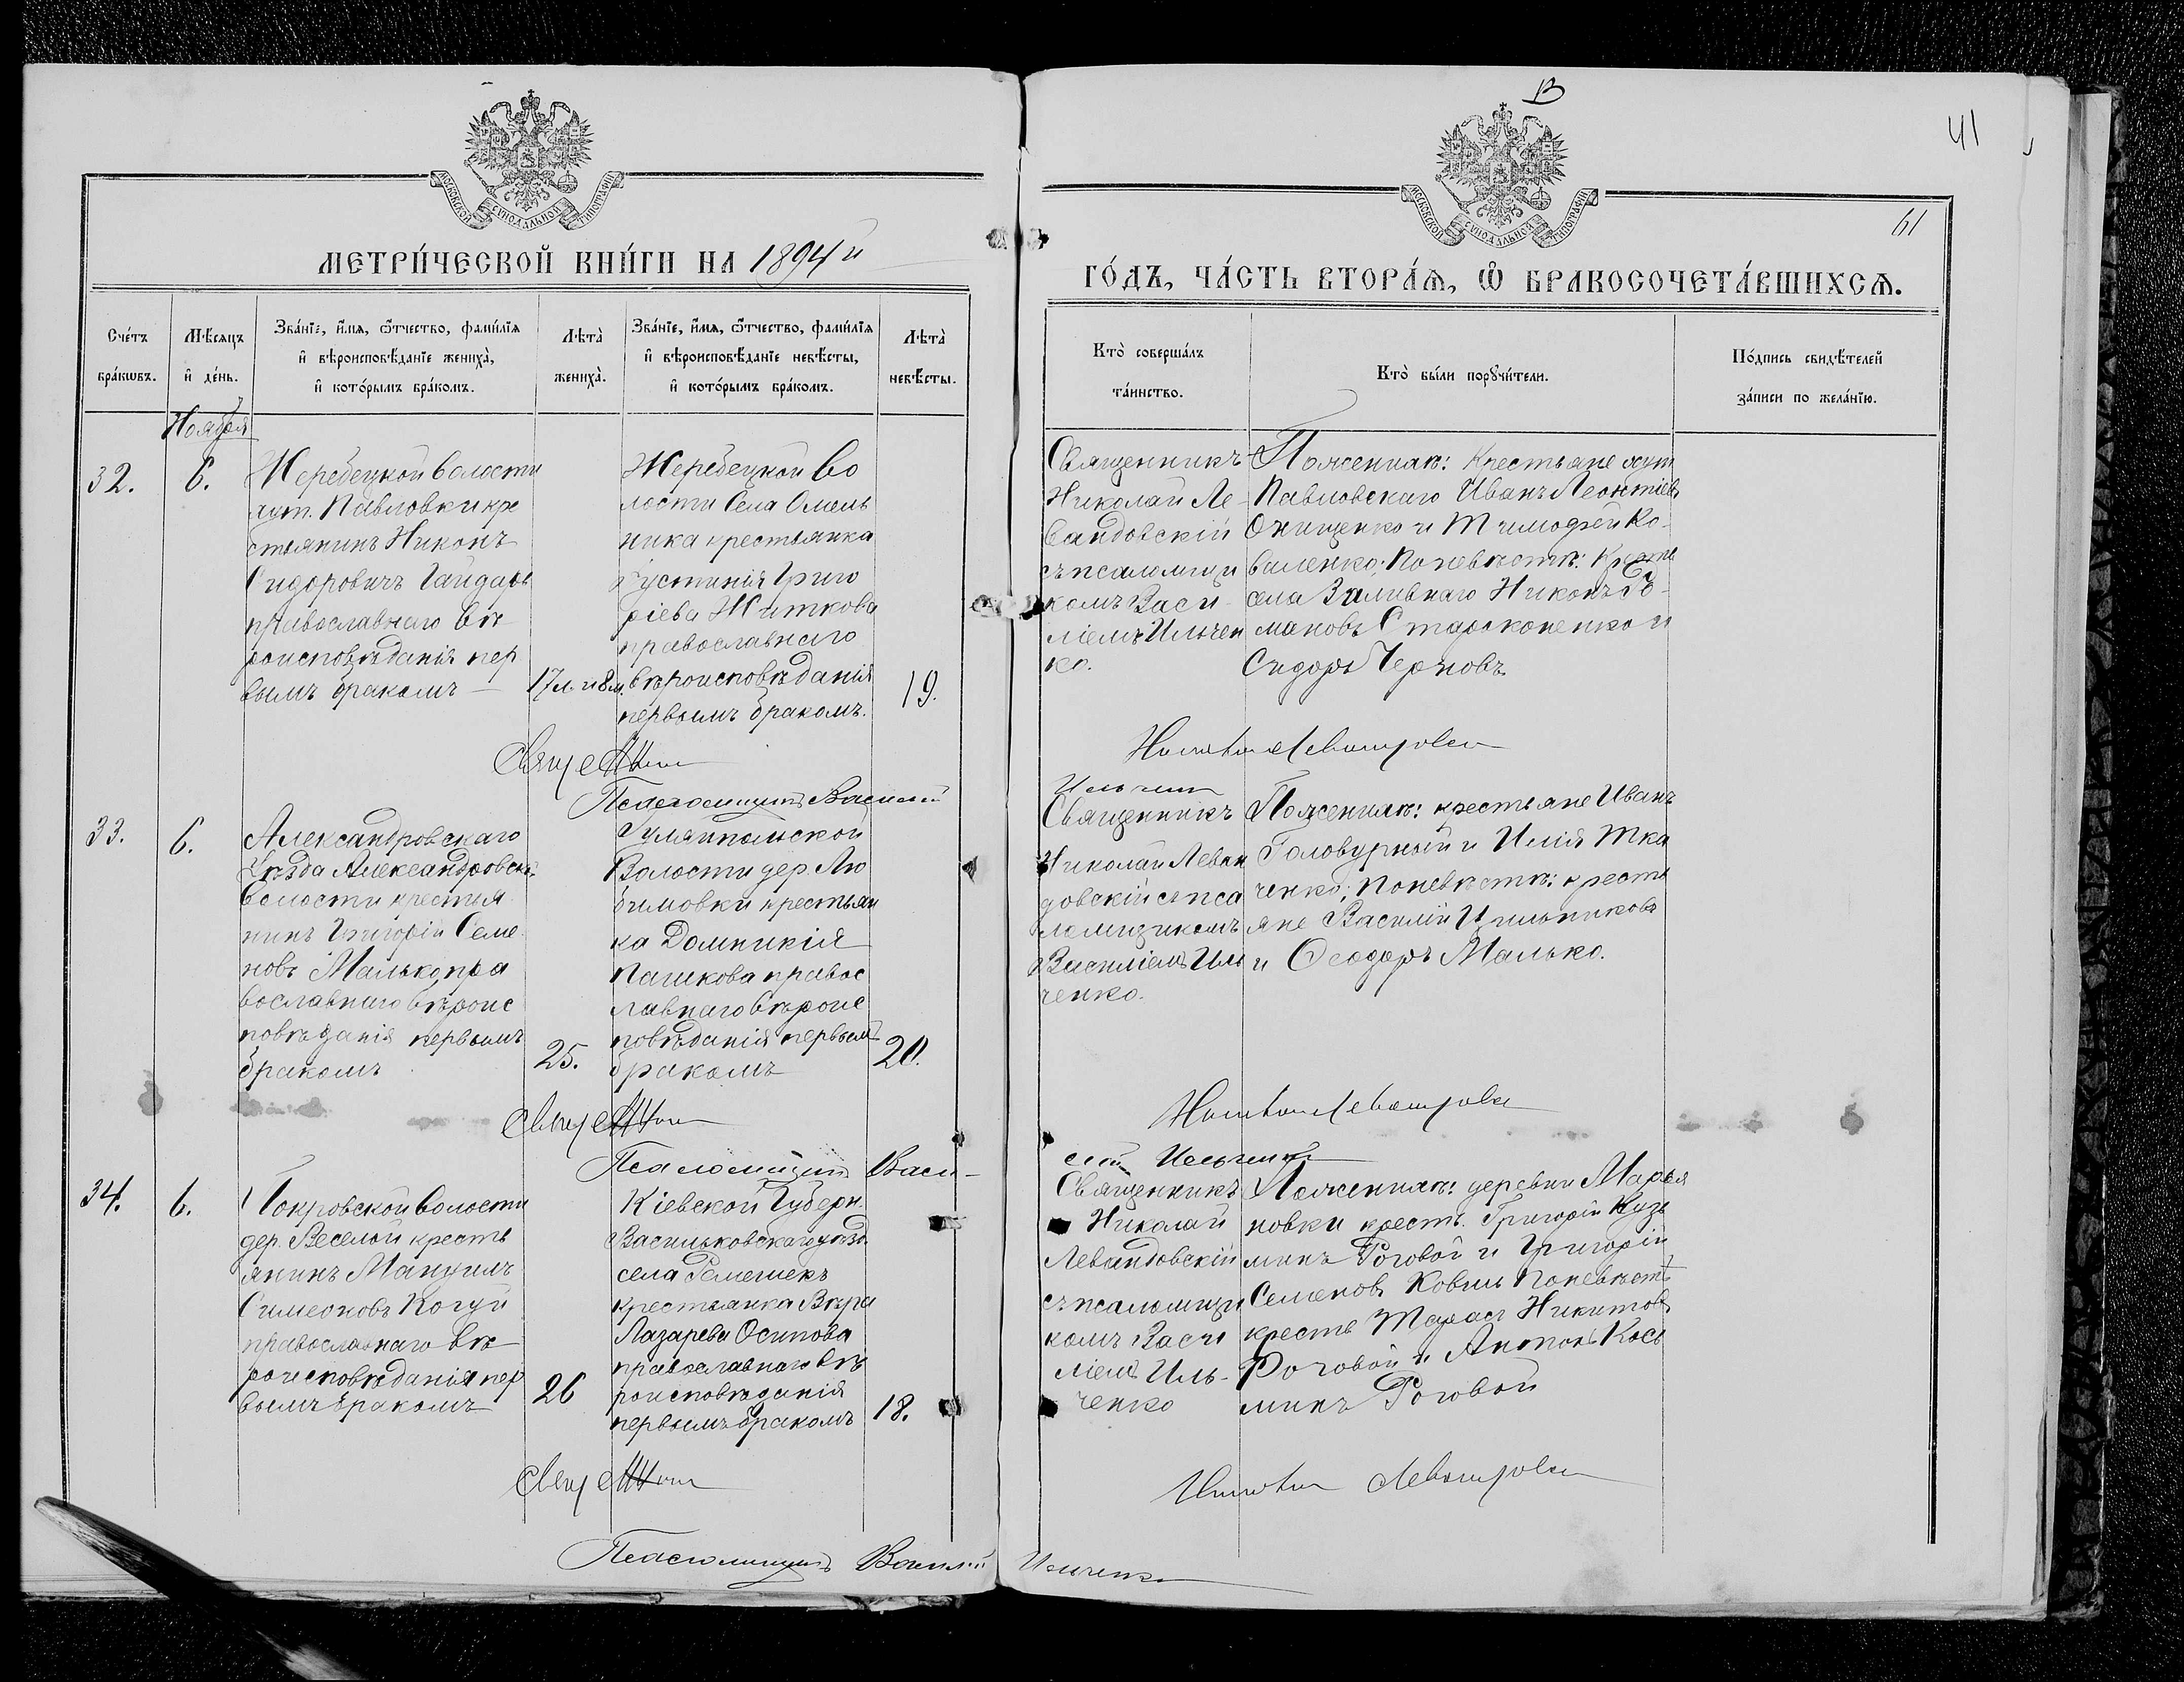 В
41
МОСКОВСКОЙ СѴНОДАЛЬНОЙ ТИПОГРАФІИ
МОСКОВСКОЙ СѴНОДАЛЬНОЙ ТИПОГРАФІИ
61
МЕТРИ́ЧЕСКОЙ КНИ́ГИ НА 1894й
ГО́ДЪ, ЧА́СТЬ ВТОРА́Ѧ, Ѽ БРАКОСОЧЕТА́ВШИХСѦ.
Сче́тъ
бра́кωвъ.
Мѣ́сяцъ
и҆ де́нь.
Зва́нїе, и҆́мѧ, ѻ҆́тчество, фами́лїѧ
и҆ вѣроисповѣ́данїе жениха̀,
и҆ кото́рымъ бра́комъ.
Лѣта̀
жениха̀.
Зва́нїе, и҆́мѧ, ѻ҆́тчество, фами́лїѧ
и҆ вѣроисповѣ́данїе невѣ́сты,
и҆ кото́рымъ бра́комъ.
Лѣта̀
невѣ́сты.
Кто̀ соверша́лъ
та́инство.
Кто̀ бы́ли порꙋчи́тели.
По́дпись свидѣ́телей
за́писи по жела́нїю.
Ноября
32.
6.
Жеребецкой волости
хут. Павловки кре
стьянинъ Никонъ
Сидоровичъ Гайдарь
православнаго вѣ
роисповѣданія пер
вымъ бракомъ —
17 л. и 8 м.
Жеребецкой во
лости села Омель
ника крестьянка
Іустинія Григо
ріева Житкова
православнаго
вѣроисповѣданія
первымъ бракомъ.
19.
Священникъ
Николай Ле-
вандовскій
съ псаломщи
комъ Васи-
ліемъ Ильчен
ко.
По женихѣ: крестьяне хут
Павловскаго Иванъ Леонтіевъ
Онищенко и Тимофей Ко-
валенко; По невѣстѣ: Крестье
села Заливнаго Никонъ Ро-
мановъ Староконенко и
Сидоръ Черновъ.
Николай Левандовск
Псаломщикъ Василій
Ильченко
33.
6.
Александровскаго
Уѣзда Александровск.
волости крестья
нинъ Григорій Семе
новъ Малько, пра
вославнаго вѣроис
повѣданія первымъ
бракомъ
25.
Гуляйпольской
Волости дер. Лю
бимовки крестьян
ка Домникія
Пашкова правос
лавнаго вѣроис
повѣданія первымъ
бракомъ
20.
Священникъ
Николай Леван
довскій съ пса
ломщикомъ
Василіемъ Иль
ченко.
По женихѣ: крестьяне Иванъ
Головурный и Илія Тка
ченко; по невѣстѣ: кресть
яне Василій
и Ѳеодоръ Малько.
Николай Левандовск
Псаломщикъ Васи-
лій Ильченко
34.
6.
Покровской волости
дер. Веселой кресть
янинъ Мануилъ
Симеоновъ Когуй
православнаго вѣ
роисповѣданія пер
вымъ бракомъ
26
Кіевской Губерн.
Васильковскаго уѣзд.
села
крестьянка Вѣра
Лазарева Осипова
православнаго вѣ
роисповѣданія
первымъ бракомъ
18.
Священникъ
Николай
Левандовскій
съ псаломщи
комъ Васи
ліемъ Иль-
ченко
По женихѣ: деревни Марья
новки крест. Григорій Кузь
минъ Роговой и Григорій
Семеновъ Ковшъ По невѣстѣ
крестье Тарасъ Никитовъ
Роговой и Антонъ Кось
минъ Роговой
Николай Левандовск
Псаломщикъ Василій Ильченко